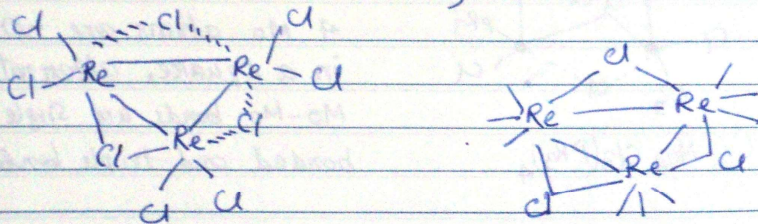 Cl Cl Cl
Cl Re Re Cl
Cl Re Cl
Cl Cl
Cl
Re Re
Cl Re Cl